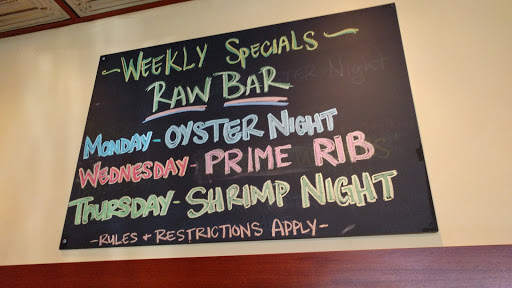 ~ WEEKLY SPECIALS ~
RAW BAR
MONDAY - OYSTER NIGHT
WEDNESDAY - PRIME RIB
THURSDAY - SHRIMP NIGHT
- RULES + RESTRICTIONS APPLY -